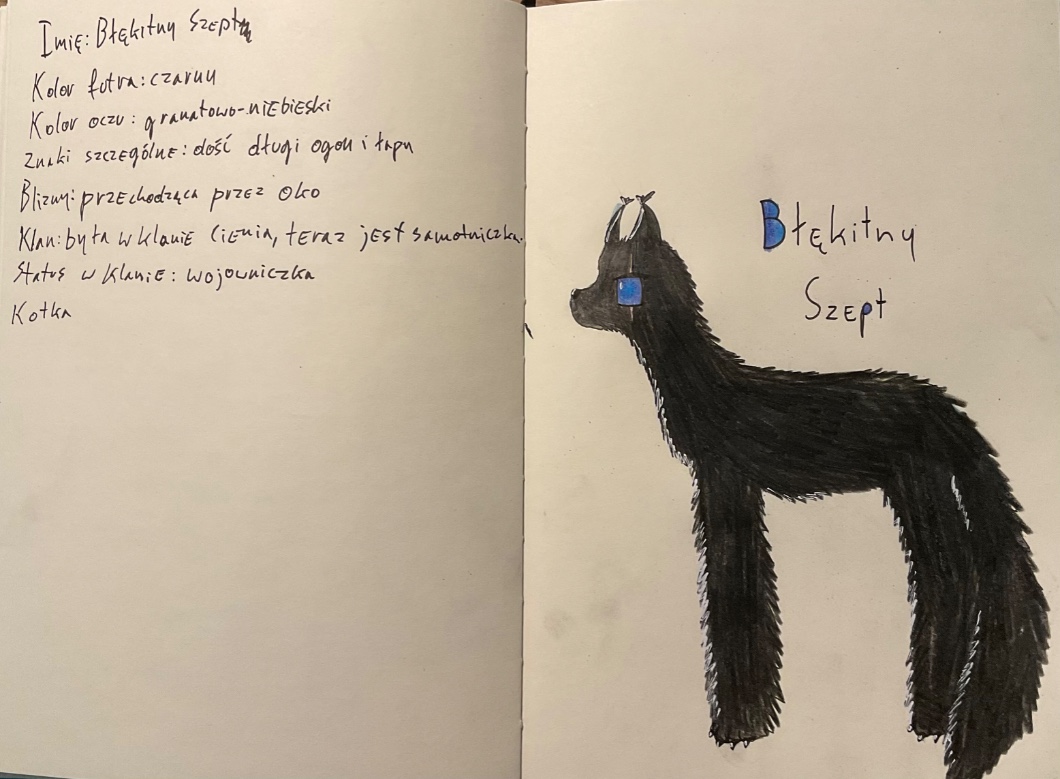 Imię: Błękitny Szept
Kolor futra: czarny
Kolor oczu: granatowo-niebieski
Znaki szczególne: dość długi ogon i łapy
Blizny: przechodząca przez oko
Klan: była w klanie Cienia, teraz jest samotniczka.
Status w klanie: wojowniczka
Kotka
Błękitny
Szept